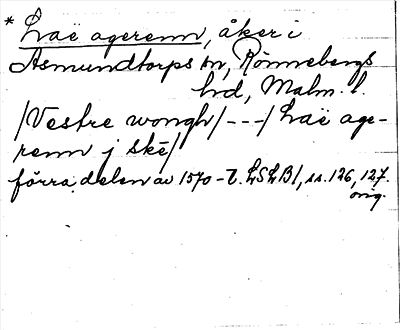 * Laë agerenn, åker i
Asmundtorps sn, Rönnebergs
hd, Malm. l.
/Vestre wongh/---/Laë age-
renn j skë/
förra delen av 1570-t. LSLB1, ss. 126, 127.
orig.